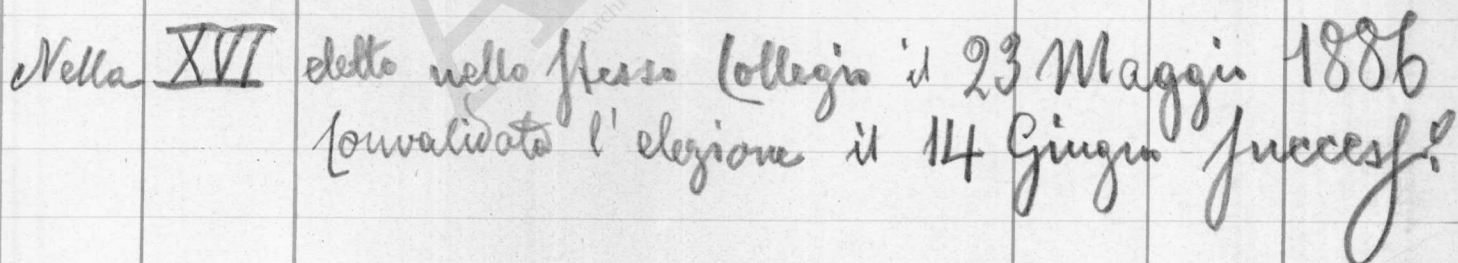 Nella XVI eletto nello stesso Collegio il 23 Maggio 1886
Convalidata l'elezione il 14 Giugno success.o